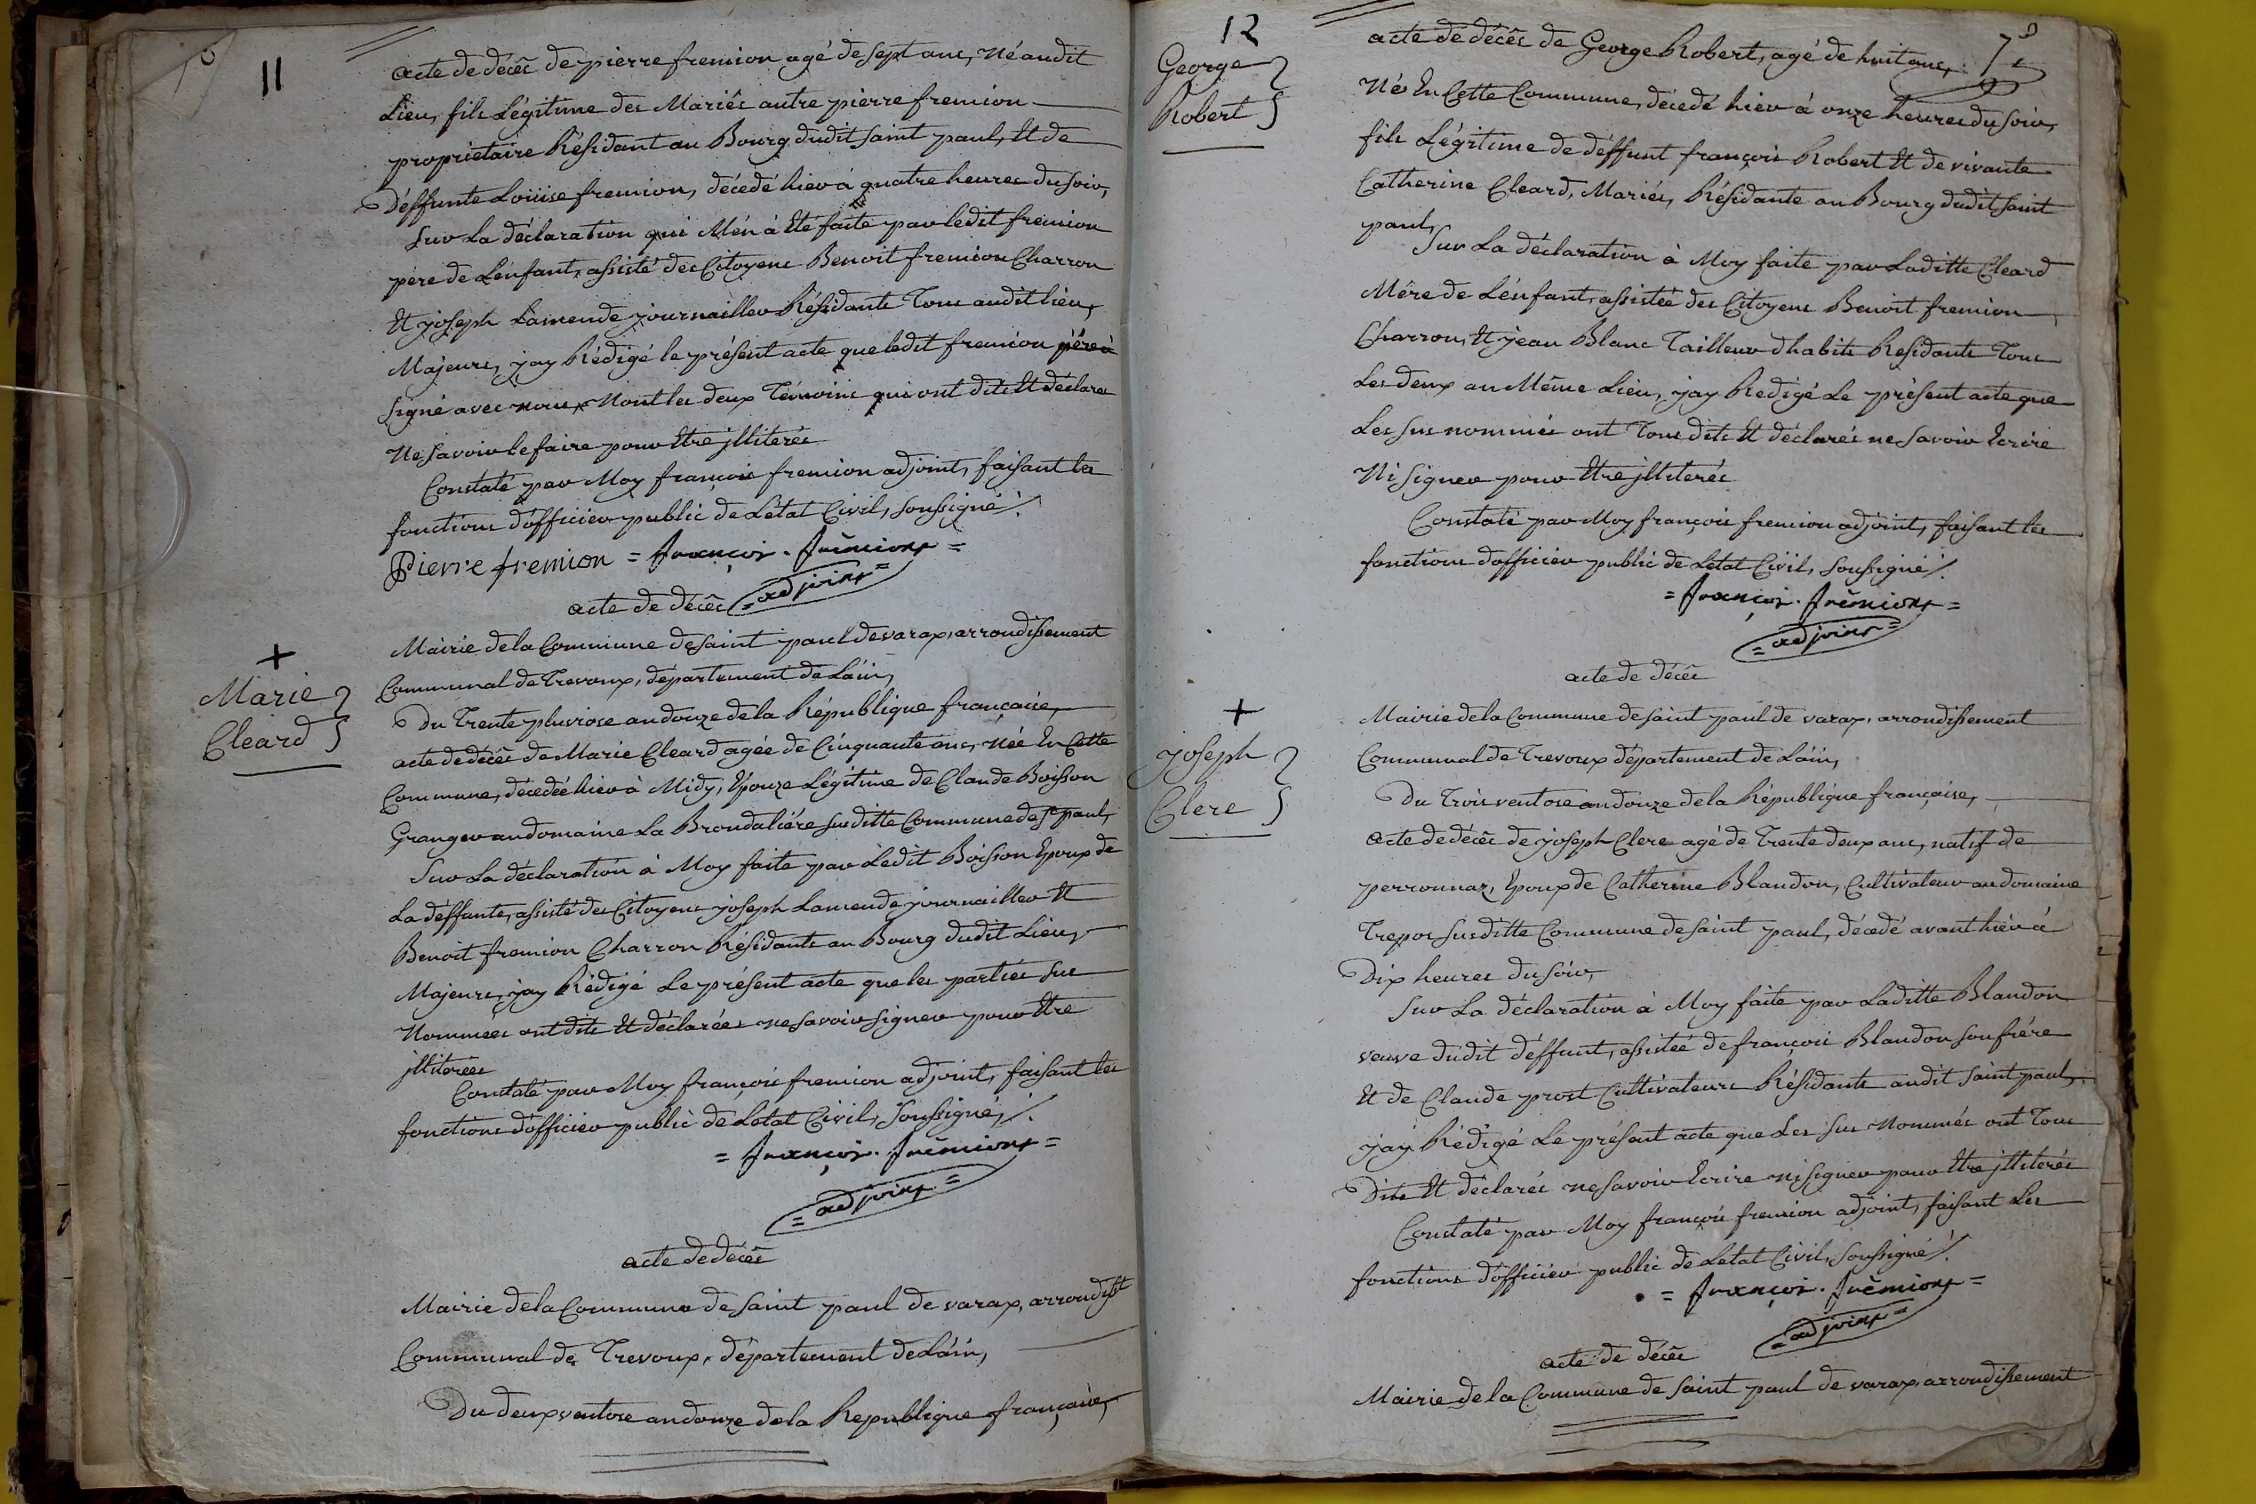 11
acte de décês de pierre fremion agé de sept ans, Né audit
Lieu, fils Légitime des Mariés autre pierre fremion
proprietaire Résidant au Bourg dudit saint paul, Et de
Déffunte Loüise fremion, décedé hier à quatre heures du soir,
Sur La déclaration qui M'en à Eté faite par ledit fremion
pere de L'énfant, assisté des Citoyens Benoit fremion Charron
Et joseph Lamende journaillier Résidants Tous audit lieu,
Majeurs, j'ay Rédigé le présent acte que ledit fremion pére à
signé avec nous, Non les deux Témoins qui ont dits Et déclarés
Ne savoir le faire pour Etre jlliterés
Constaté par Moy françois fremion adjoint, faisant les
fonctions d'officier public de L'état Civil, soussigné ./.
Pierre fremion = françois. frèmion =
= adjoint =
acte de décês
Mairie de la Commune de saint paul de varax, arrondissement
Communal de Trevoux, département de L'ain,
+
Marie
Cleard
Du Trente pluviose an douze de la République française,
acte de décês de Marie Cleard agée de Cinquante ans, Née En Cette
Commune, décedée hier à Midy, Epouze Légitime de Claude Boisson
Granger au domaine La Brondaliére susditte Commune de St paul,
Sur La déclaration à Moy faite par Ledit Boisson Epoux de
La déffunte, assisté des Citoyens joseph Lamende journaillier Et
Benoit fremion Charron Résidants au Bourg dudit Lieu,
Majeurs, j'ay Rédigé Le présent acte que les parties sus
Nommées ont dits Et déclarées ne savoir signer pour Etre
jlliterées
Constaté par Moy françois fremion adjoint, faisant les
fonctions d'officier public de L'etat Civil, Soussigné, ./.
= françois. frèmion =
= adjoint =
acte de décês
Mairie de la Commune de saint paul de varax, arrondisst
Communal de Trevoux, département de L'ain,
Du deux ventose an douze de la Republique française,
12
George
Robert
acte de décês de George Robert, agé de huit ans,
Né En Cette Commune, décedé hier à onze heures du soir,
fils Légitime de déffunt françois Robert Et de vivante
Catherine Cleard, Mariés, Résidante au Bourg dudit saint
paul,
Sur La déclaration à Moy faite par Laditte Cleard
Mére de L'énfant, assistée des Citoyens Benoit fremion
Charron, Et jean Blanc Tailleur d'habits Residants Tous
Les deux au Même Lieu, j'ay Redigé Le présent acte que
Les sus nommés ont Tous dits Et déclarés ne savoir Ecrire
Ni signer pour Etre jlliterés
Constaté par Moy françois fremion adjoint, faisant les
fonctions d'officier public de L'etat Civil, soussigné ./.
= françois. frèmion =
= adjoint =
acte de décês
Mairie de la Commune de saint paul de varax, arrondissement
Communal de Trevoux département de L'ain,
+
joseph
Clere
Du Trois ventose an douze de la République française,
acte de décês de joseph Clere agé de Trente deux ans, natif de
perronnaz, Epoux de Catherine Blandon, Cultivateur au domaine
Trepos susditte Commune de saint paul, décedé avant hier à
Dix heures du soir,
Sur La déclaration à Moy faite par Laditte Blandon
veuve dudit déffunt, assistée de françois Blandon son frére
Et de Claude prost Cultivateurs Résidants audit saint paul,
j'ay Rédigé Le présent acte que Les sus Nommés ont Tous
Dits Et déclarés ne savoir Ecrire ni signer pour Etre jlliterés
Constaté par Moy françois fremion adjoint, faisant Les
fonctions d'officier public de L'etat Civil, soussigné ./.
= françois. frèmion =
= adjoint =
acte de décês
Mairie de la Commune de saint paul de varax, arrondissement